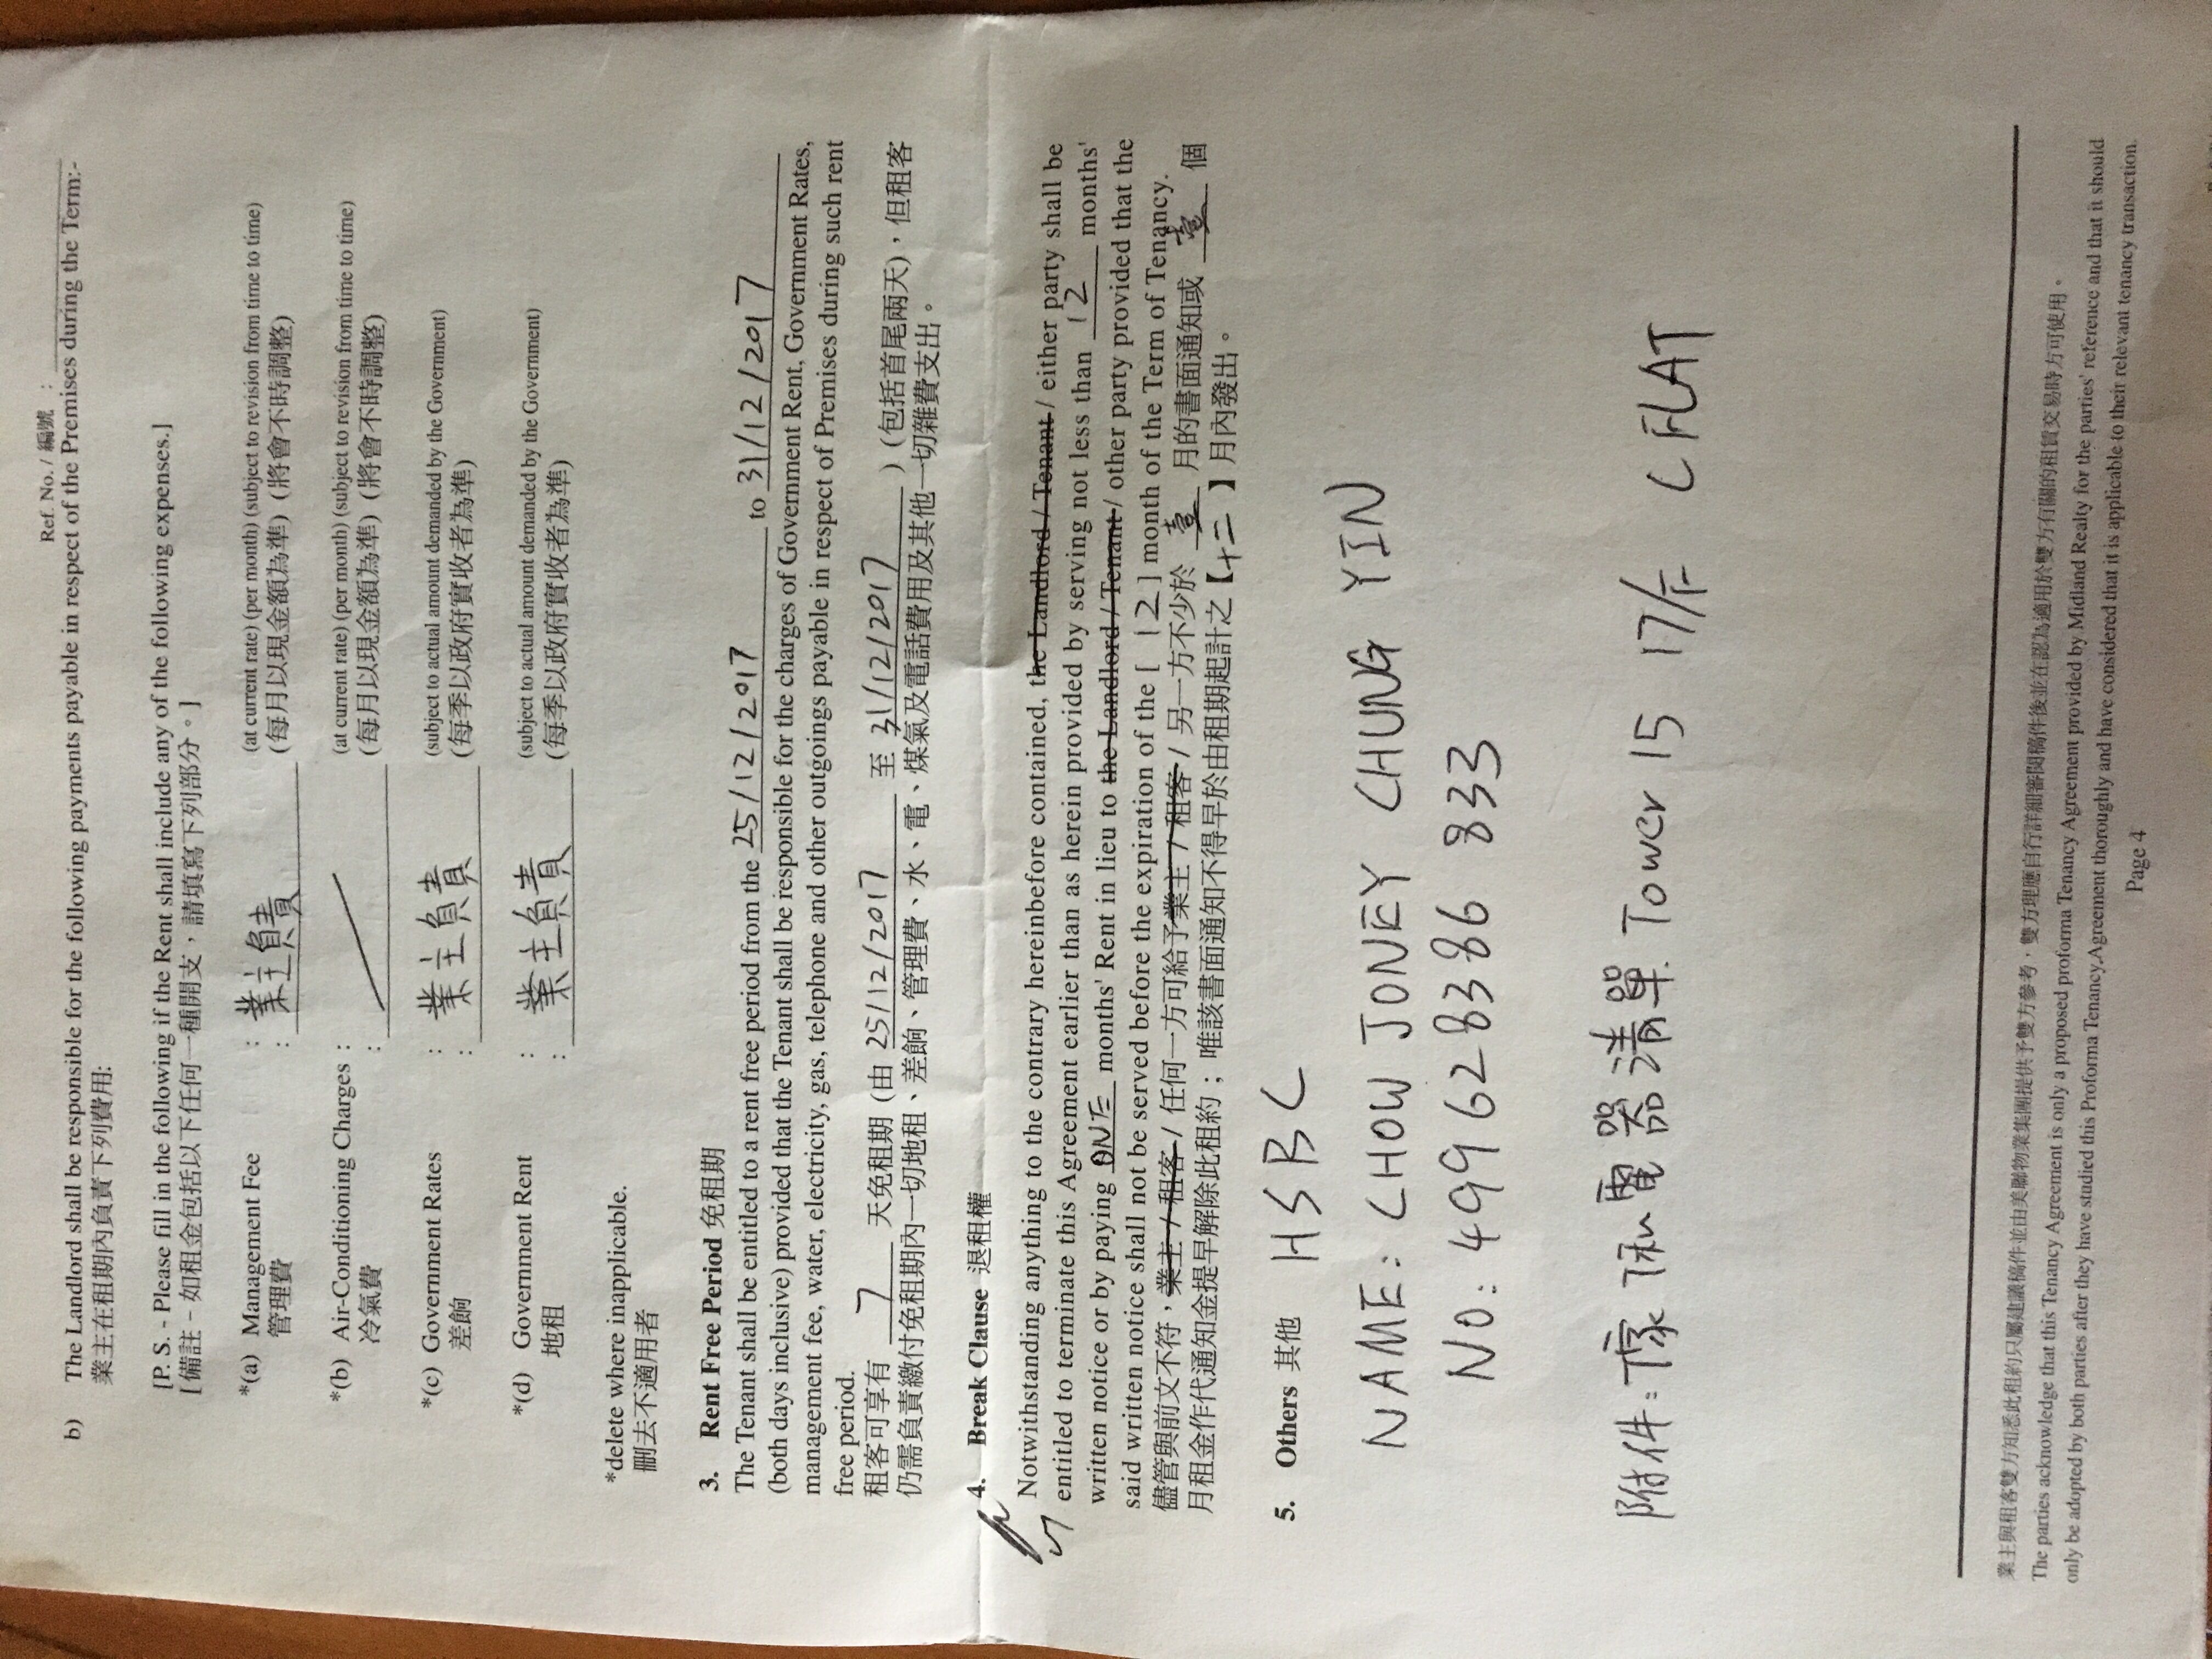 Ref. No. / 編號 :
b) The Landlord shall be responsible for the following payments payable in respect of the Premises during the Term:-
業主在租期內負責下列費用:
[P. S. - Please fill in the following if the Rent shall include any of the following expenses.]
[ 備註 - 如租金包括以下任何一種開支，請填寫下列部分。]
*(a) Management Fee : 業主負責 (at current rate) (per month) (subject to revision from time to time)
管理費 : (每月以現金額為準) (將會不時調整)
*(b) Air-Conditioning Charges : (at current rate) (per month) (subject to revision from time to time)
冷氣費 : (每月以現金額為準) (將會不時調整)
*(c) Government Rates : 業主負責 (subject to actual amount demanded by the Government)
差餉 : (每季以政府實收者為準)
*(d) Government Rent : 業主負責 (subject to actual amount demanded by the Government)
地租 : (每季以政府實收者為準)
*delete where inapplicable.
刪去不適用者
3. Rent Free Period 免租期
The Tenant shall be entitled to a rent free period from the 25/12/2017 to 31/12/2017
(both days inclusive) provided that the Tenant shall be responsible for the charges of Government Rent, Government Rates,
management fee, water, electricity, gas, telephone and other outgoings payable in respect of Premises during such rent
free period.
租客可享有 7 天免租期 (由 25/12/2017 至 31/12/2017 ) (包括首尾兩天)，但租客
仍需負責繳付免租期內一切地租、差餉、管理費、水、電、煤氣及電話費用及其他一切雜費支出。
4. Break Clause 退租權
Notwithstanding anything to the contrary hereinbefore contained, the Landlord / Tenant / either party shall be
entitled to terminate this Agreement earlier than as herein provided by serving not less than 12 months'
written notice or by paying ONE months' Rent in lieu to the Landlord / Tenant / other party provided that the
said written notice shall not be served before the expiration of the [ 12 ] month of the Term of Tenancy.
儘管與前文不符，業主 / 租客 / 任何一方可給予業主 / 租客 / 另一方不少於 壹 月的書面通知或 壹 個
月租金作代通知金提早解除此租約；唯該書面通知不得早於由租期起計之【十二】月內發出。
5. Others 其他 HSBC
NAME: CHOW JONEY CHUNG YIN
NO: 499 628386 833
附件: 傢俬電器清單. Tower 15 17/F C FLAT
業主與租客雙方知悉此租約只屬建議稿件並由美聯物業集團提供予雙方參考，雙方理應自行詳細審閱稿件後並在認為適用於雙方有關的租賃交易時方可使用。
The parties acknowledge that this Tenancy Agreement is only a proposed proforma Tenancy Agreement provided by Midland Realty for the parties' reference and that it should
only be adopted by both parties after they have studied this Proforma Tenancy Agreement thoroughly and have considered that it is applicable to their relevant tenancy transaction.
Page 4